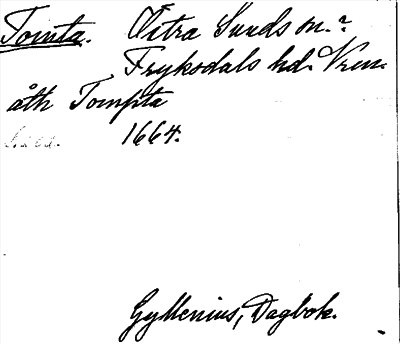 Tomta. Östra Sunds sn.?
Fryksdals hd. Vrml.
åth Tompta
1664.
Gyllenius, Dagbok.